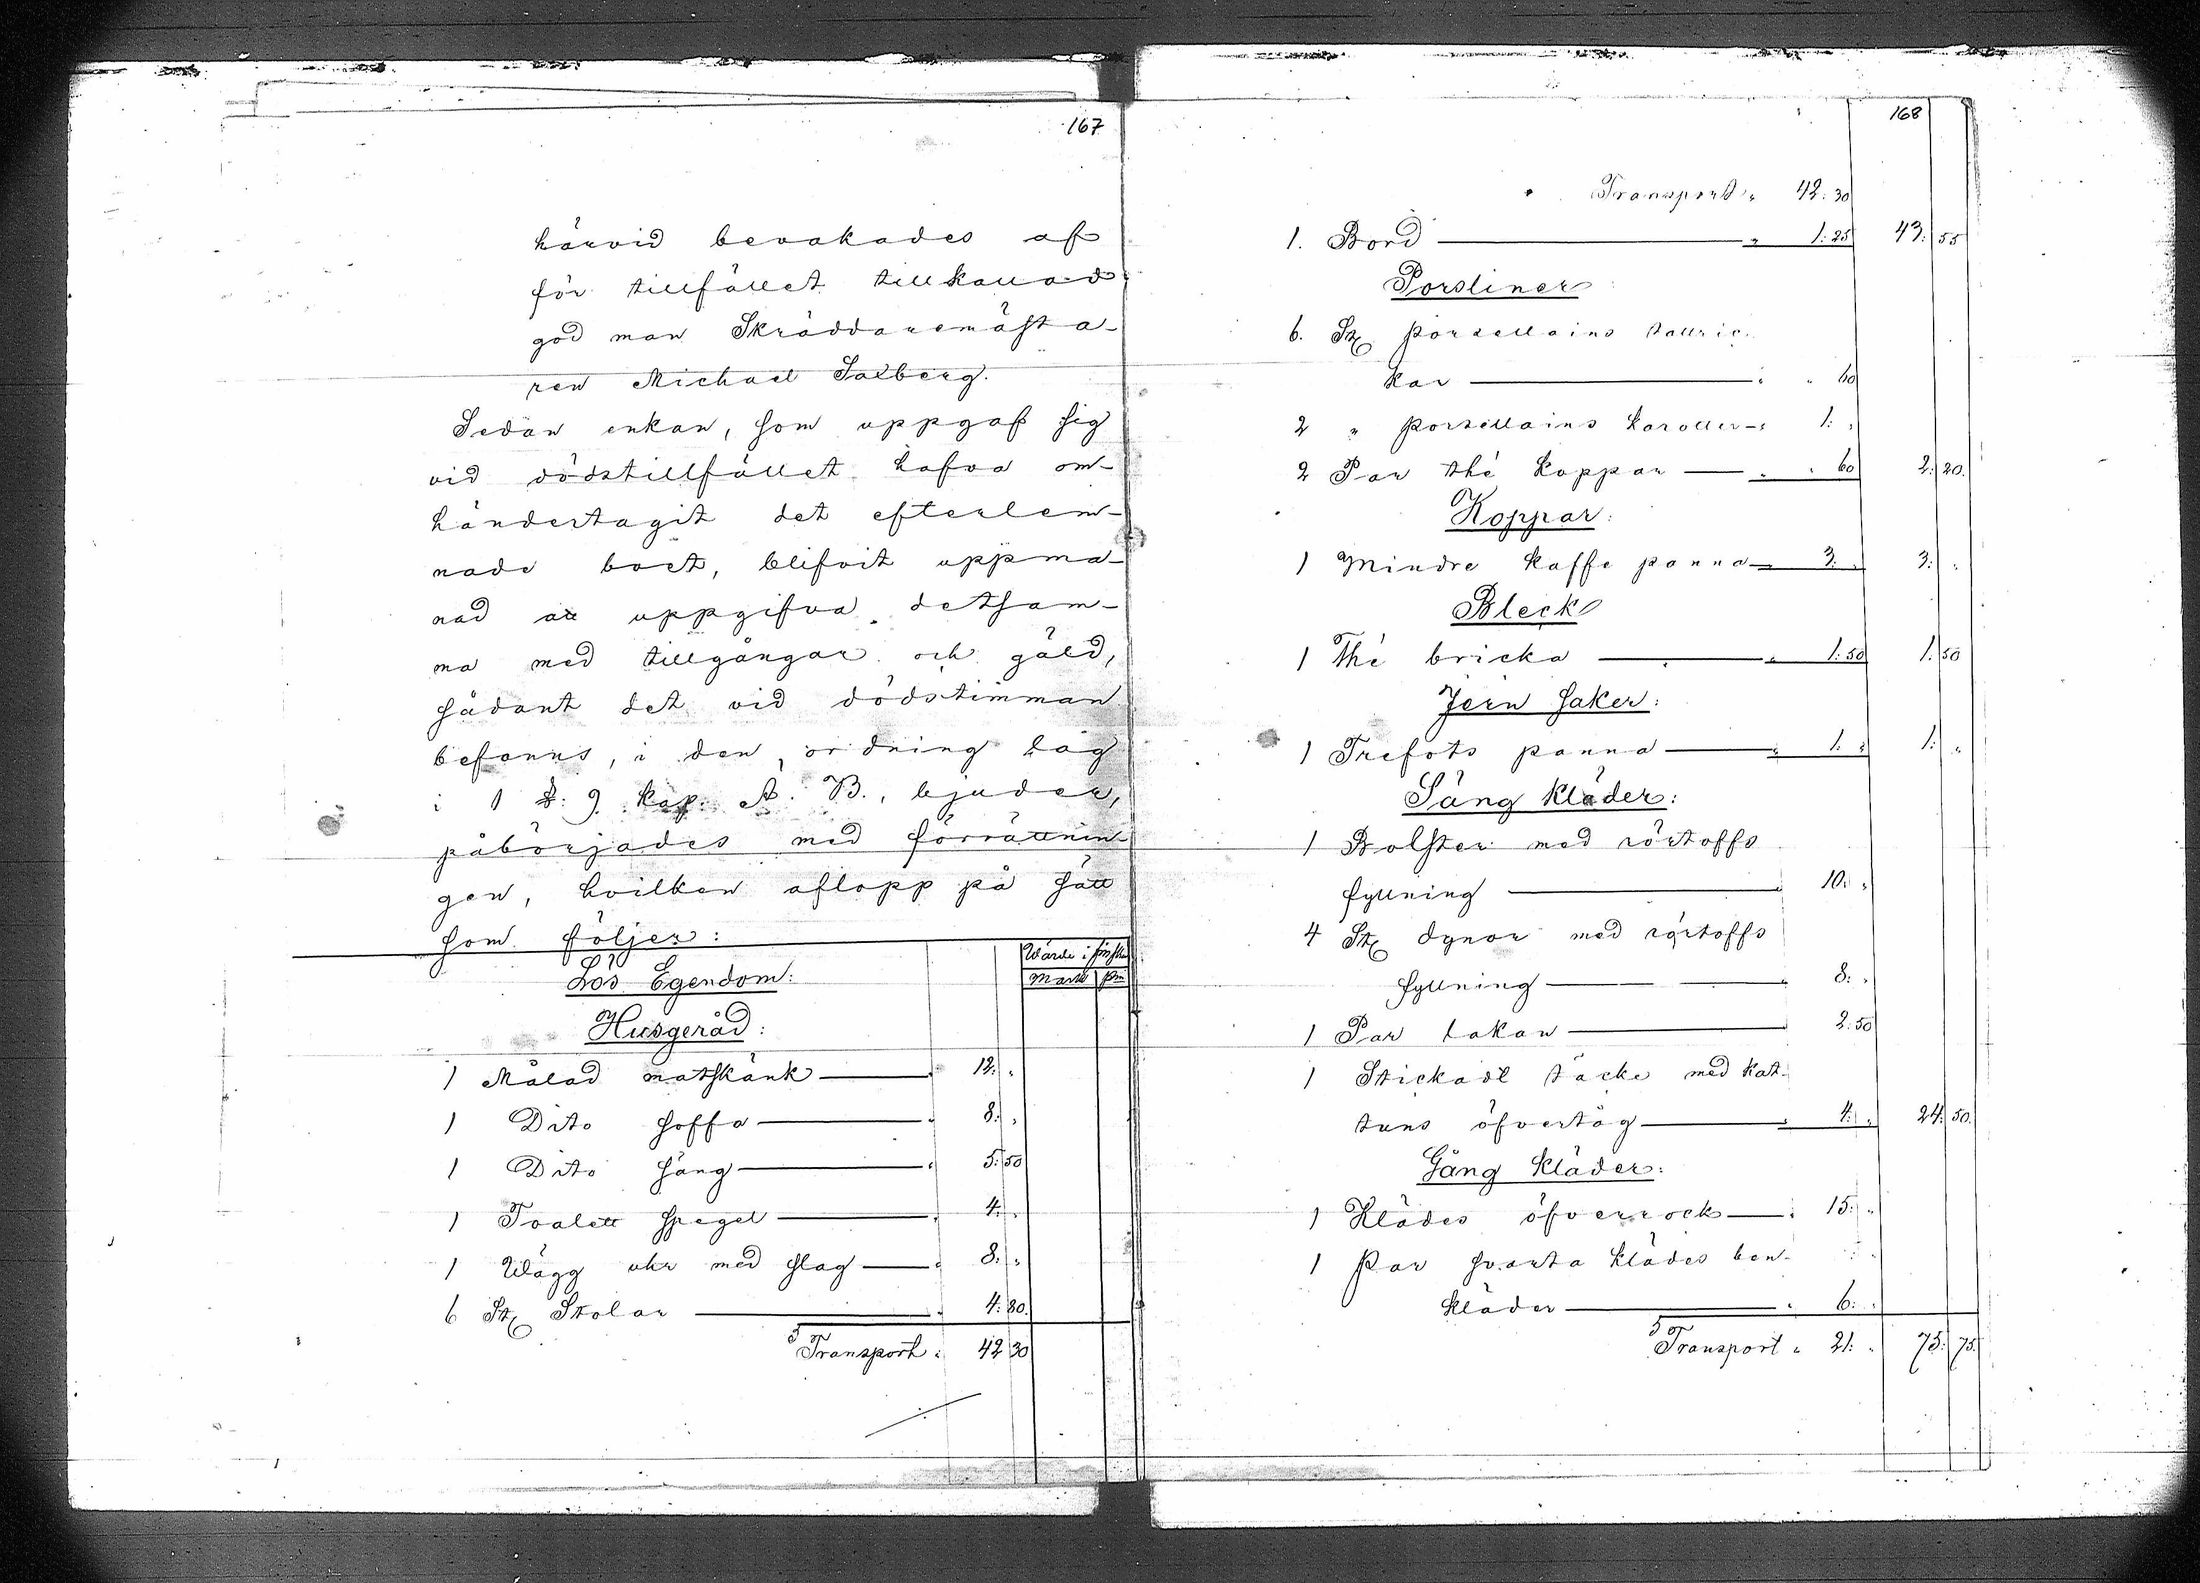 167
härvid bevakades af
för tillfället tillkallad
god man Skräddaremästa-
ren Michael Salberg.
Sedan enkan, som uppgaf sig
vid dödstillfället hafva om-
händertagit det efterlem-
nade boet, blifvit uppma-
nad att uppgifva detsam-
ma med tillgångar och gäld,
sådant det vid dödstimman
befanns, i den ordning lag
i 1 §: 9 kap: Ä. B., bjuder,
påbörjades med förrättnin-
gen, hvilken aflopp på sätt
som följer:
Wärde i finska
Mark pni
Lös Egendom:
Husgeråd:
1 Målad matskänk — " 12: "
1 Dito soffa — " 8: "
1 Dito säng — " 5: 50
1 Toalett spegel — " 4: "
1 Wägg uhr med slag — " 8: "
6 St. Stolar — " 4: 80.
Transport " 42 30
168
Transport " 42: 30
1. Bord — " 1: 25 43: 55
Porsliner
6. St. porsellains tallric-
kar — " " 60
2 " porsellains karotter — " 1: "
2 Par thé koppar — " " 60 2: 20.
Koppar:
1 Mindre kaffe panna — 3: " 3: "
Bleck
1 Thé bricka — " 1: 50 1: 50
Jern saker:
1 Trefots panna — " 1: " 1: "
Säng kläder:
1 Bolster med rörtoffs
fyllning — " 10: "
4 St. dynor med rörtoffs
fyllning — " 8: "
1 Par lakan — 2: 50
1 Stickadt täcke med kat-
tuns öfvertåg — " 4: " 24: 50.
Gång kläder:
1 Klädes öfverrock — " 15: "
1 Par svarta klädes ben-
kläder — " 6: "
Transport " 21: " 75: 75.